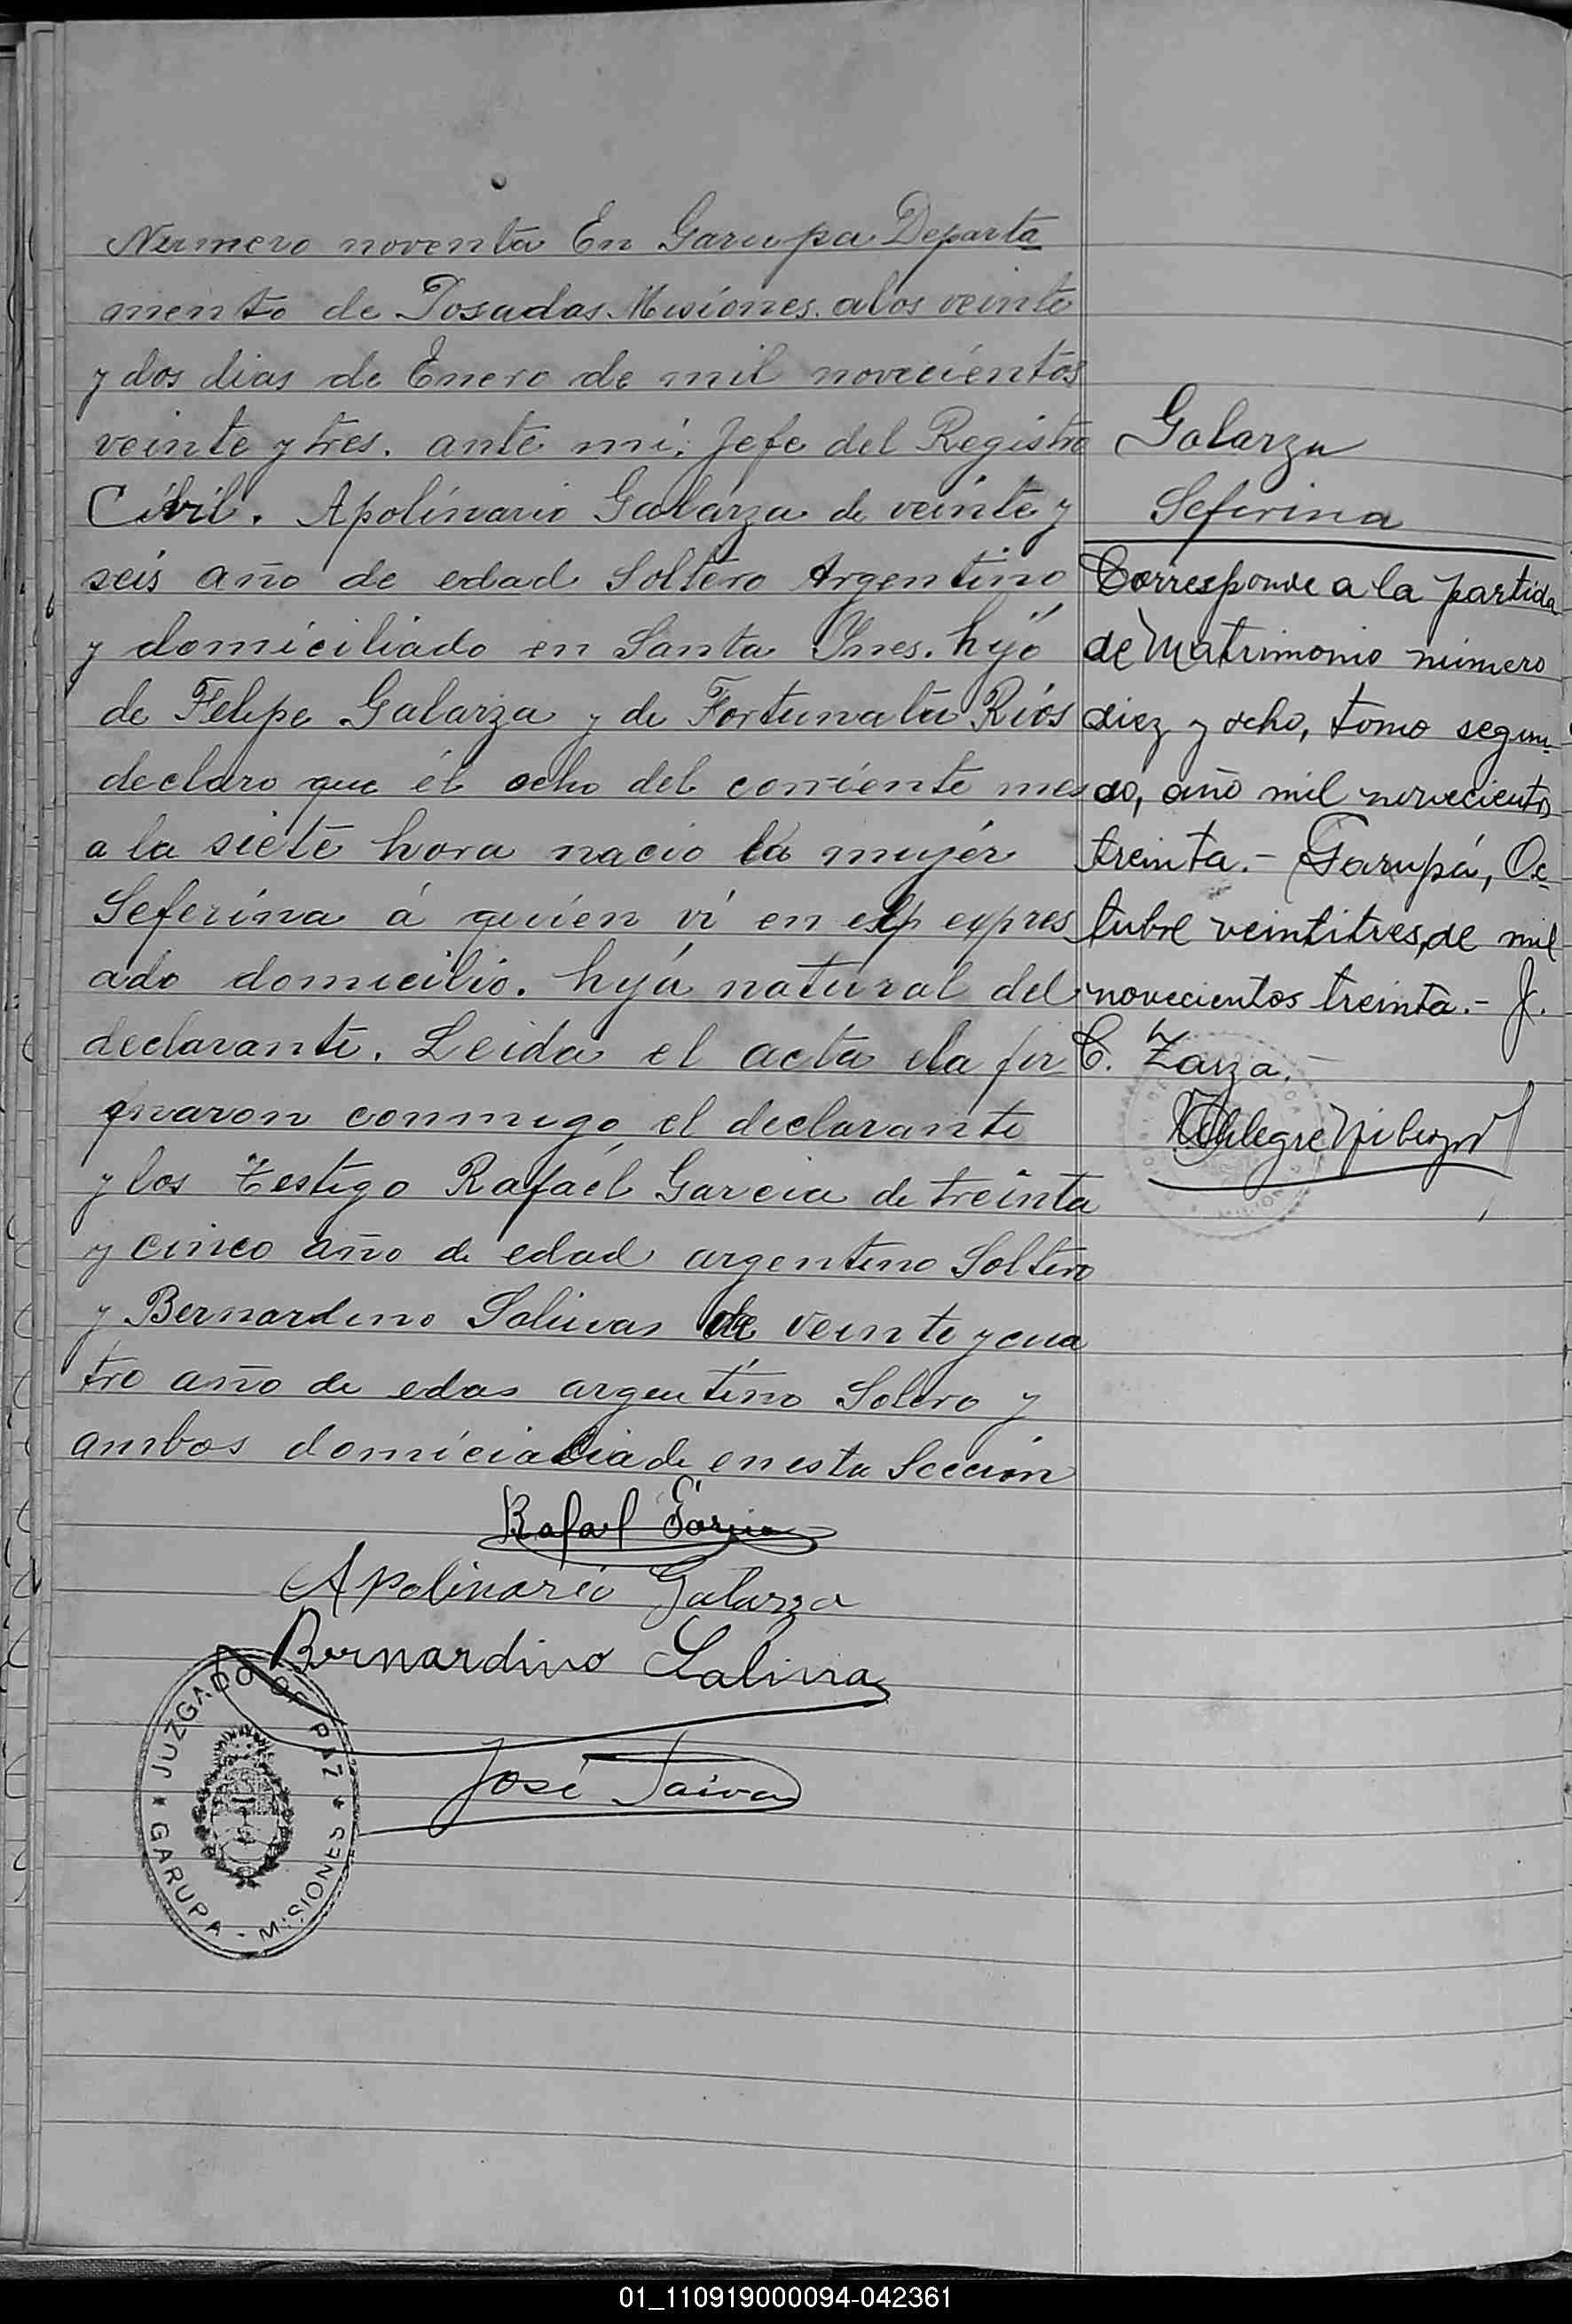 Numero noventa En Garupa Departa
mento de Posadas Misiones. alos veinte
y dos dias de Enero de mil novecientos
veinte y tres. ante mi: Jefe del Registro
Civil. Apolinario Galarza de veinte y
seis año de edad Soltero Argentino
y domiciliado en Santa Ynes. hijo
de Felipe Galarza y de Fortunata Rios
declaro que él ocho del corriente mes
a la siete hora nacio la mujer
Seferina á quien vi en exp expres
ado domicilio. hija natural del
declarante. Leida el acta ela fir
maron conmigo el declarante
y los Testigo Rafaél Garcia de treinta
y cinco año de edad argentino Soltero
y Bernardino Salinas de veinte y cua
tro año de edas argentino Solero y
ambos domiciaciade en esta Sección
Rafael Garcia
Apolinario Galarza
Bernardino Salina
José Paiva
JUZGADO DE PAZ * MISIONES - GARUPA *
Galarza
Seferina
Corresponde a la partida
de Matrimonio número
diez y ocho, tomo segun-
do, año mil novecientos
treinta.- Garupá, Oc-
tubre veintitres, de mil
novecientos treinta.- J.
C. Zarza.-
01_110919000094-042361